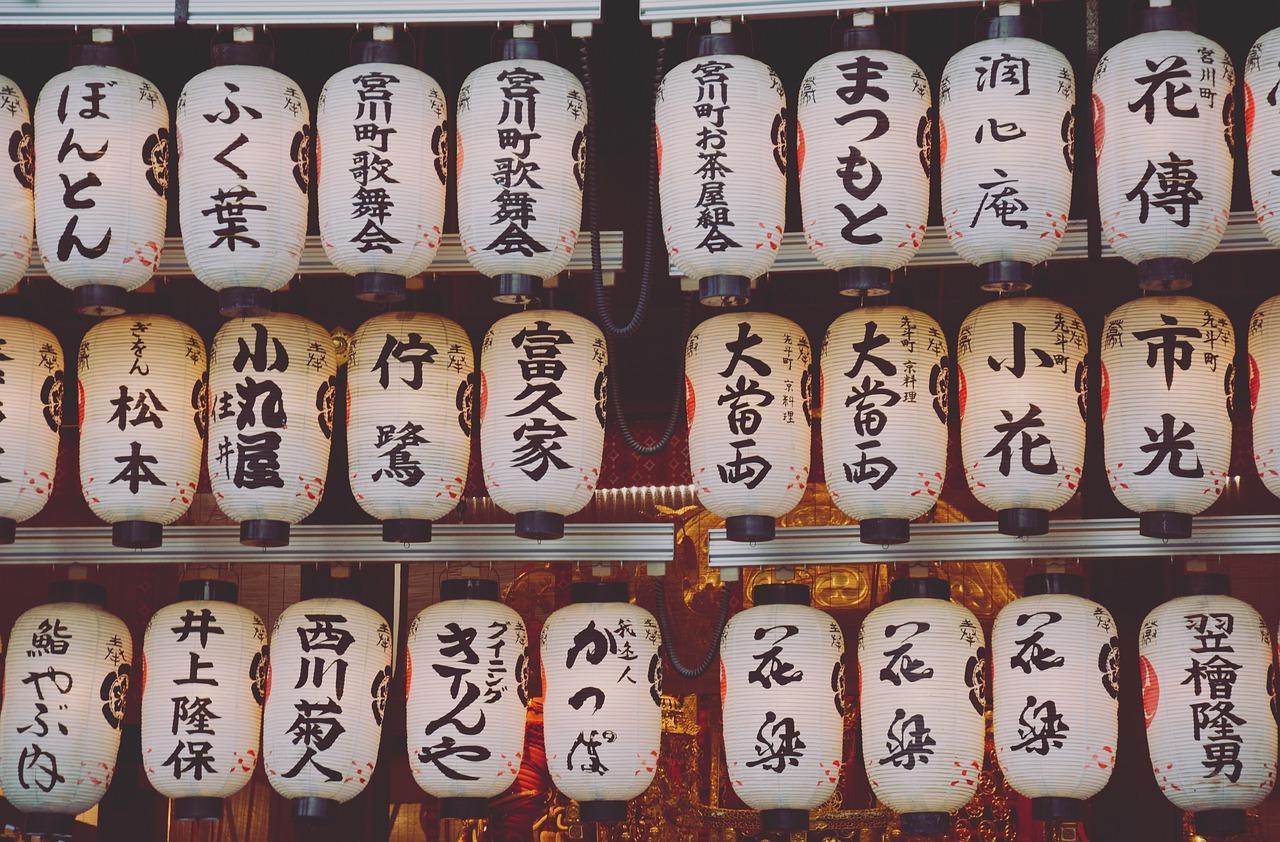 ぼんとん
ふく葉
宮川町歌舞会
宮川町歌舞会
宮川町お茶屋組合
まつもと
潤心庵
宮川町
花傳
ぎをん
松本
小丸屋
住井
佇鷺
富久家
先斗町 京料理
大當両
先斗町 京料理
大當両
先斗町
小花
先斗町
市光
鮨やぶ内
井上隆保
西川菊人
ダイニング
きりんや
先途人
花染
花染
花染
翌檜隆男